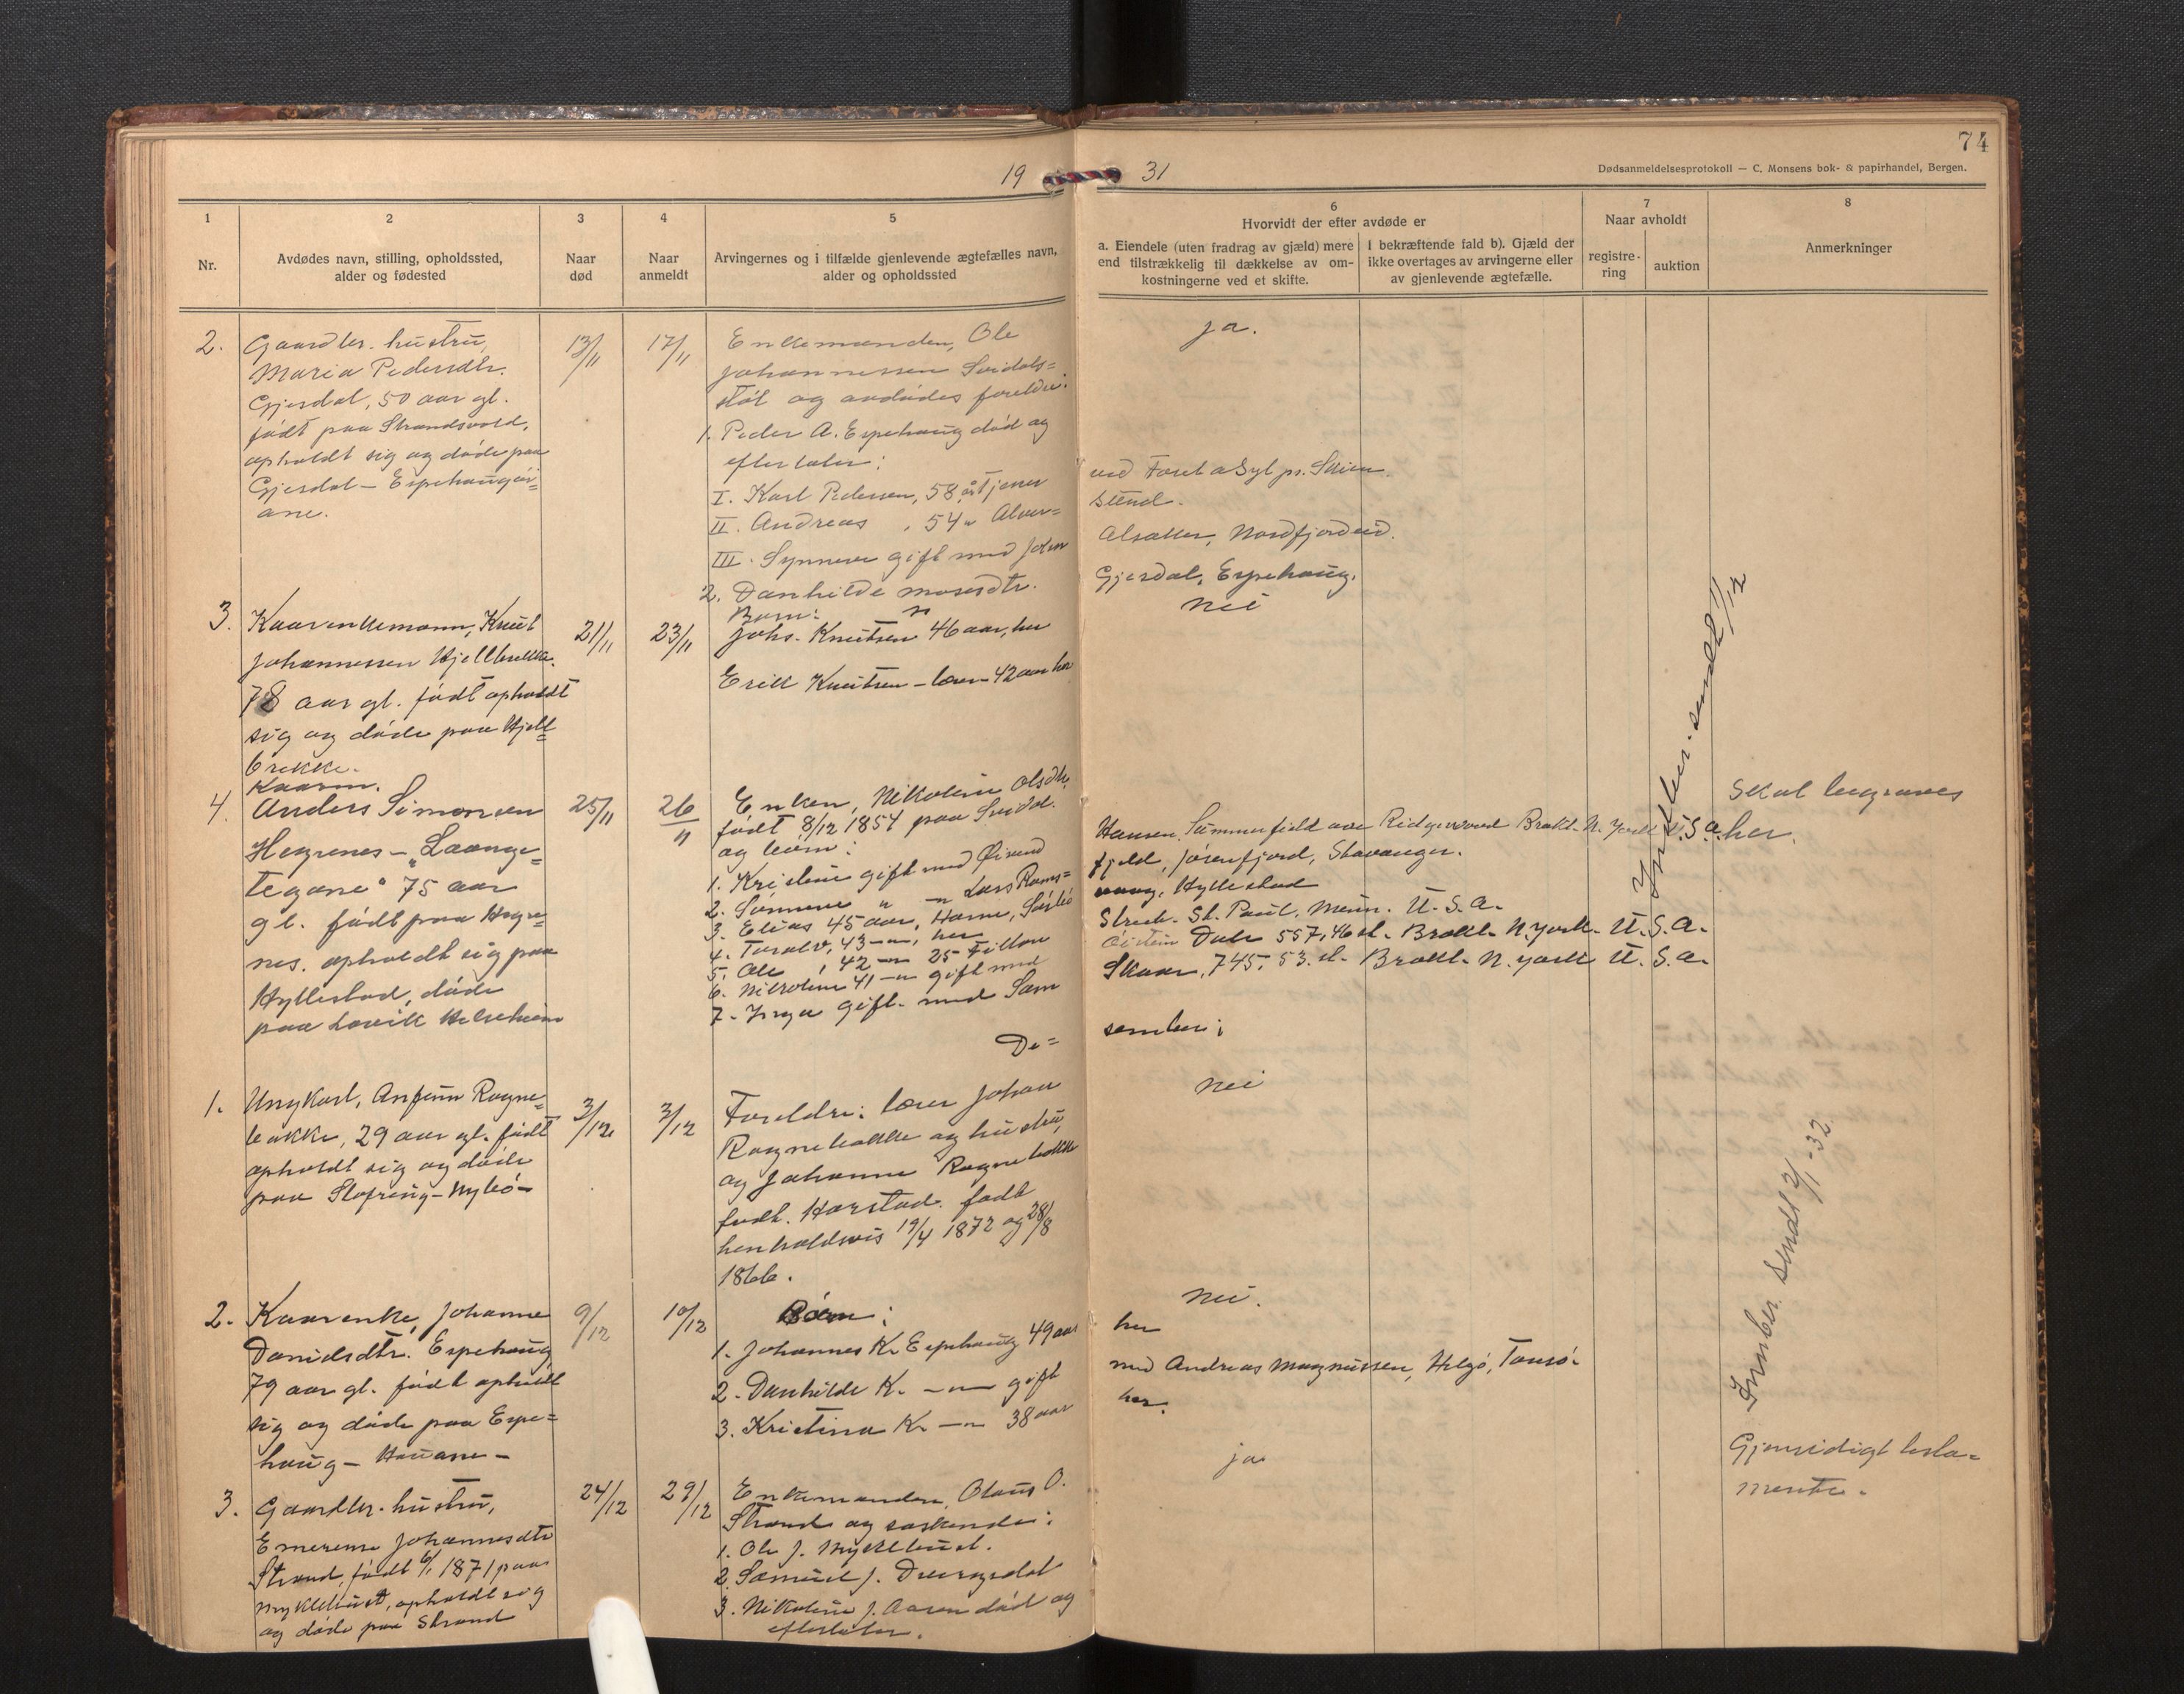 74
19 31
Dødsanmeldelsesprotokoll — C. Monsens bok- & papirhandel, Bergen.
1
Nr.
2
Avdødes navn, stilling, opholdssted,
alder og fødested
3
Naar
død
4
Naar
anmeldt
5
Arvingernes og i tilfælde gjenlevende ægtefælles navn,
alder og opholdssted
6
Hvorvidt der efter avdøde er
a. Eiendele (uten fradrag av gjæld) mere
end tilstrækkelig til dækkelse av om-
kostningerne ved et skifte.
I bekræftende fald b). Gjæld der
ikke overtages av arvingerne eller
av gjenlevende ægtefælle.
7
Naar avholdt
registre-
ring
auktion
8
Anmerkninger
2.
Gaardbr. hustru,
Maria Pedersdtr.
Gjesdal, 50 aar gl.
født paa Strandsvold,
opholdt sig og døde paa
Gjesdal – Espehaug
ane.
13/11
17/11
Enkemanden, Ole
Johannessen Svidals=
støl og avdødes foreldre:
1. Peder A. Espehaug død og
efterlater:
I. Karl Pedersen, 58 år tjener
II. Andreas , 54 " Alver=
III. Synneve gift med John
2. Danhilde Mosesdtr.
ja.
Stend.
Alsaker, Nordfjordeid.
Gjesdal, Espehaug.
3.
Kaarenkemann, Knut
Johannessen Hjellbrekke
78 aar gl. født opholdt
sig og døde paa Hjell=
brekke.
21/11
23/11
Børn:
Johs. Knutsen 46 aar, her
Erik Knutsen – lærer – 42 aar her
nei
4.
Kaarm.
Anders Simonsen
Hegrenes – „Laange=
tegane“ 75 aar
gl. født paa Hegre=
nes. opholdt sig paa
Hyllestad, døde
paa Lavik Helseheim
25/11
26/11
Enken, Nikoline Olsdtr.
født 8/12 1854 paa Svidal.
og børn:
1. Kristine gift med Øivind
2. Synneve " – " Lars Rams=
3. Elias 45 aar, Harne, Sørbø
4. Toralv, 43 – " , her
5. Ole , 42 – " 25 Tilton
6. Nikoline 41 – " gift med
7. Inga gift. med Sam
Hansen, Summerfield ave Ridgewood Brokl. N. York U.S.A.
fjeld, Jøsenfjord, Stavanger.
vaag, Hyllestad
Street. St. Paul, Minn. U.S.A.
Øistein Dale 557, 46 st. Brokl. N. York. U.S.A.
Skaar, 745, 53. st. Brokl. N. York U.S.A.
Skal begraves
her.
Innber. sendt 1/12
De=
sember;
1.
Ungkarl, Anfinn Rogne=
bakke, 29 aar gl. født
opholdt sig og døde
paa Sløfring – Nybø –
3/12
3/12
Foreldre: lærer Johan
Rognebakke og hustru,
og Johanne Rognebakke
født. Harstad. født
henholdsvis 19/4 1872 og 28/8
1866.
nei
2.
Kaarenke, Johanne
Danielsdtr. Espehaug
79 aar gl. født opholdt
sig og døde paa Espe=
haug – Hauane –
9/12
10/12
Børn:
1. Johannes K. Espehaug 49 aar
2. Danhilde K. – " – gift
3. Kristina K. – " 38 aar
nei.
her
med Andreas Magnussen, Helgø, Tomsø.
her.
Innber. sendt 2/1 – 32
3.
Gaardbr. hustru,
Emerense Johannesdtr
Strand, født 6/1 1871 paa
Myklebust, opholdt sig
og døde paa Strand
24/12
29/12
Enkemanden, Olaus O.
Strand og søskende:
1. Ole J. Myklebust.
2. Samuel J.
3. Nikoline J. Aaren død og
efterlater.
ja
Gjensidigt testa=
mente.